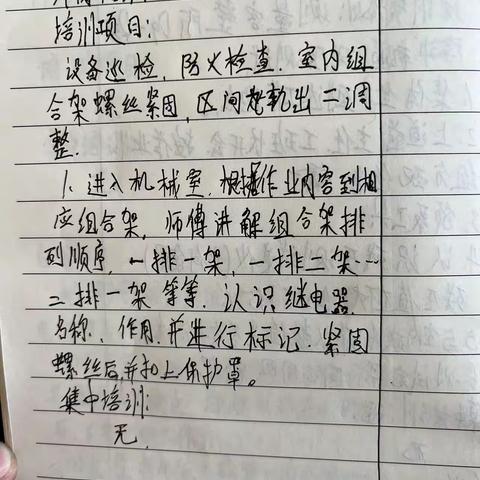 培训项目:
设备巡检，防火检查．室内组
合架螺丝紧固，区间 轨出二调
整．
1、进入机械室．根据作业内容到相
应组合架，师傅讲解组合架排
列顺序，一排一架，一排二架…
二排一架等等．认识继电器
名称、作用．并进行标记．紧固
螺丝后并扣上保护罩。
集中培训:
无．